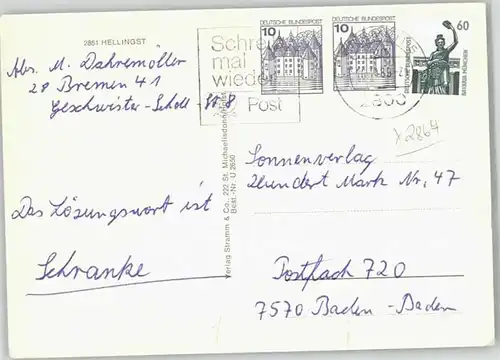 2861 HELLINGST
Abs. M. Dahremöller
28 Bremen 41
Geschwister-Scholl-Str 8
Das Lösungswort ist
Schranke
Verlag Stramm & Co., 222 St. Michaelisdonn
Best.-Nr. U 2650
Schreib
mal
wieder
Post
10
DEUTSCHE BUNDESPOST
10
DEUTSCHE BUNDESPOST
60
DEUTSCHE BUNDESPOST
BAVARIA MÜNCHEN
2800
x2864
Sonnenverlag
Hundert Mark Nr. 47
Postfach 720
7570 Baden-Baden